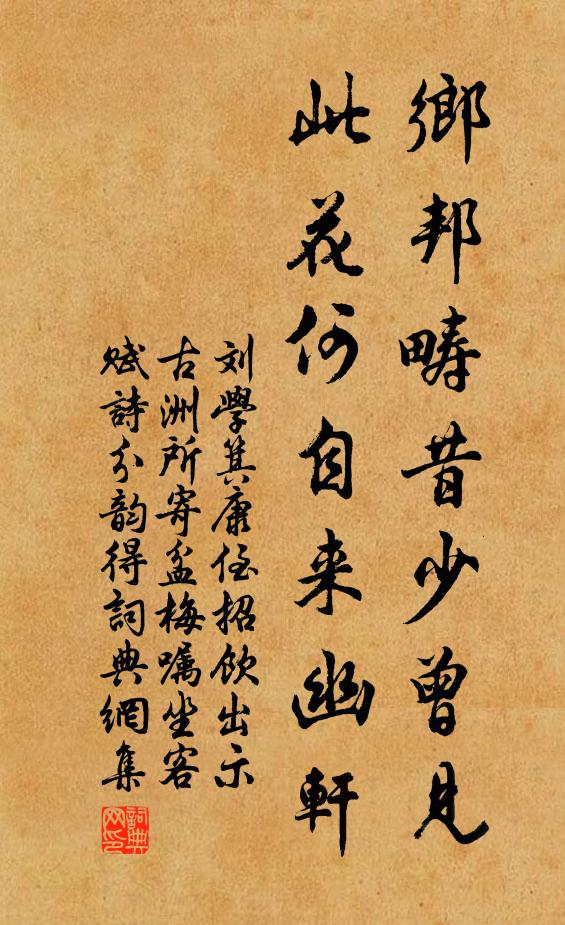 鄉邦疇昔少曾見
此花何自来幽軒
刘學箕康侄招飲出示
古洲所寄盆梅嘱坐客
赋詩分韵得詞典網集
詞典
网印